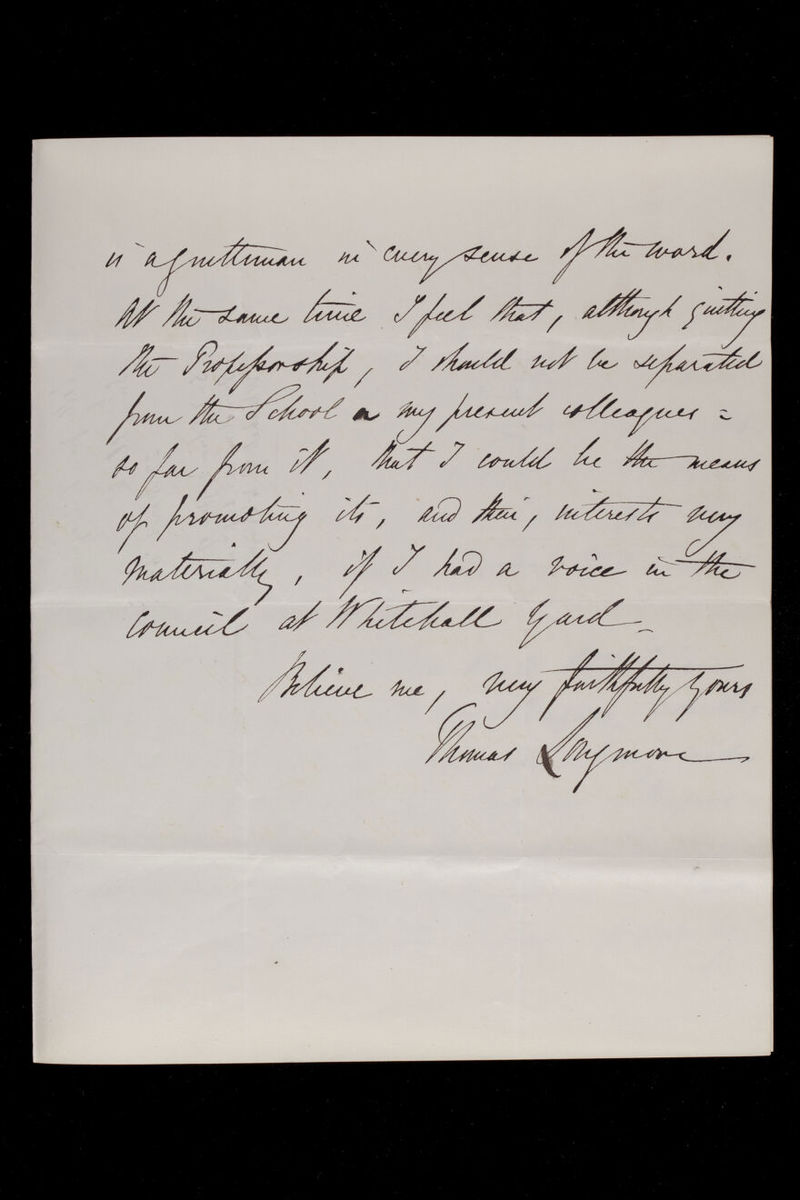 is a gentleman in every sense of the word.
At the same time I feel that, although quitting
the Professorship, I should not be separated
from the School or my present colleagues =
so far from it, that I could be the means
of promoting its, and their, interests very
materially, if I had a voice in the
council at Whitehall Yard_
Believe me, very faithfully yours
Thomas Longmore